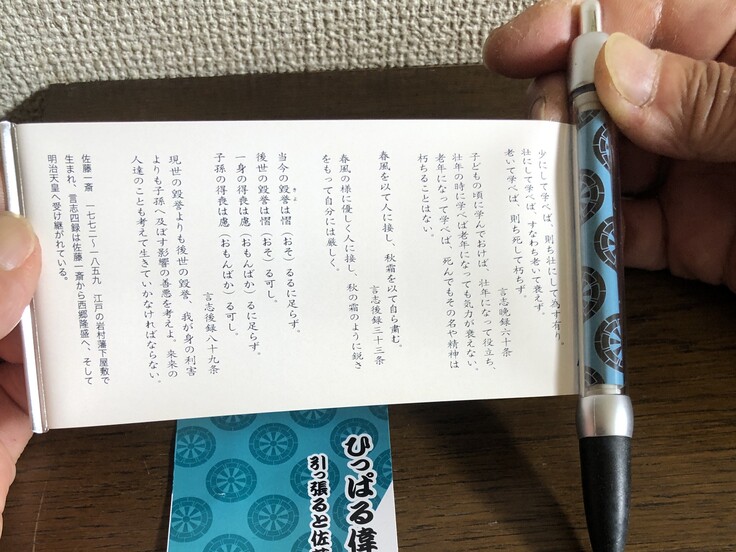 少にして学べば、則ち壮にして為す有り。
壮にして学べば、すなわち老いて衰えず。
老いて学べば、則ち死して朽ちず。
言志晩録六十条
子どもの頃に学んでおけば、壮年になって役立ち、
壮年の時に学べば老年になっても気力が衰えない。
老年になって学べば、死んでもその名や精神は
朽ちることはない。
春風を以て人に接し、秋霜を以て自ら粛む。
言志後録三十三条
春風の様に優しく人に接し、秋の霜のように鋭さ
をもって自分には厳しく。
当今の毀誉は慴(おそ)るるに足らず。
きよ
後世の毀誉は慴(おそ)る可し。
一身の得喪は慮(おもんぱか)るに足らず。
子孫の得喪は慮(おもんぱか)る可し。
言志後録八十九条
現世の毀誉よりも後世の毀誉、我が身の利害
よりも子孫へ及ぼす影響の善悪を考えよ、未来の
人達のことも考えて生きていかなければならない。
佐藤一斎 一七七二〜一八五九 江戸の岩村藩下屋敷で
生まれ、言志四録は佐藤一斎から西郷隆盛へ、そして
明治天皇へ受け継がれている。
ひっぱる偉
引っ張ると佐